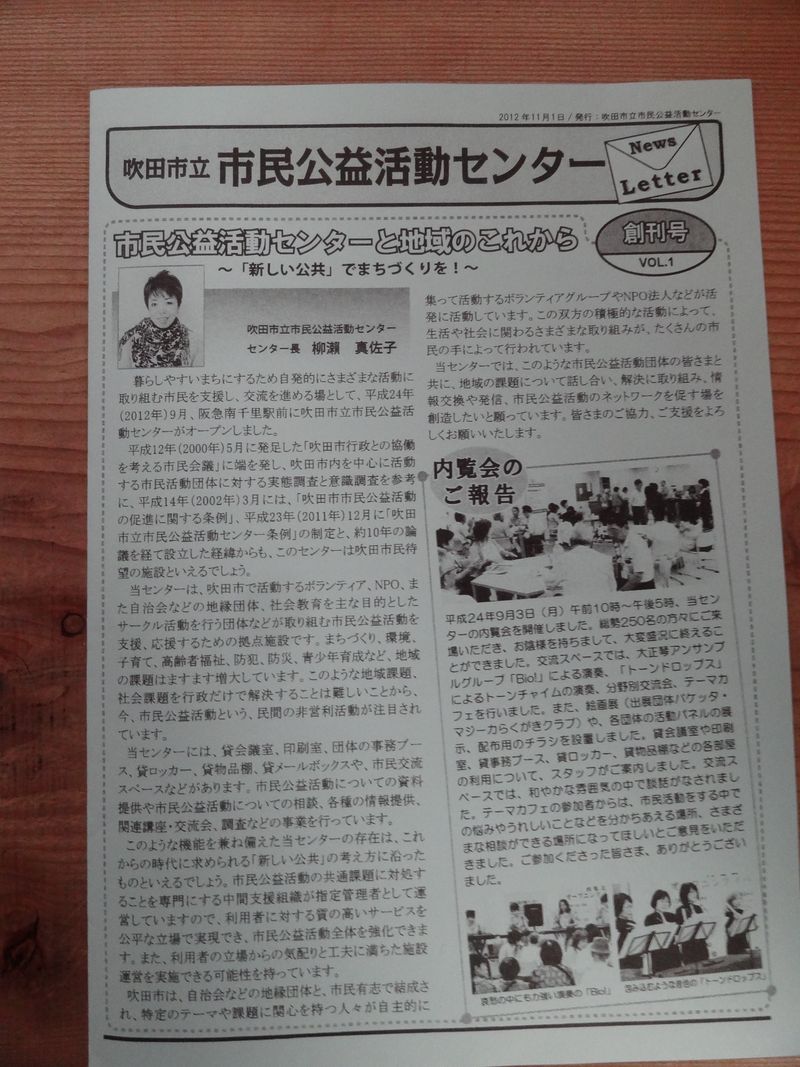 2012年11月1日/発行:吹田市立市民公益活動センター
吹田市立 市民公益活動センター
News
Letter
市民公益活動センターと地域のこれから
～「新しい公共」でまちづくりを!～
創刊号
VOL.1
吹田市立市民公益活動センター
センター長 柳瀬 真佐子
暮らしやすいまちにするため自発的にさまざまな活動に
取り組む市民を支援し、交流を進める場として、平成24年
(2012年)9月、阪急南千里駅前に吹田市立市民公益活
動センターがオープンしました。
平成12年(2000年)5月に発足した「吹田市行政との協働
を考える市民会議」に端を発し、吹田市内を中心に活動
する市民活動団体に対する実態調査と意識調査を参考
に、平成14年(2002年)3月には、「吹田市市民公益活動
の促進に関する条例」、平成23年(2011年)12月に「吹田
市立市民公益活動センター条例」の制定と、約10年の論
議を経て設立した経緯からも、このセンターは吹田市民待
望の施設といえるでしょう。
当センターは、吹田市で活動するボランティア、NPO、ま
た自治会などの地縁団体、社会教育を主な目的とした
サークル活動を行う団体などが取り組む市民公益活動を
支援、応援するための拠点施設です。まちづくり、環境、
子育て、高齢者福祉、防犯、防災、青少年育成など、地域
の課題はますます増大しています。このような地域課題、
社会課題を行政だけで解決することは難しいことから、
今、市民公益活動という、民間の非営利活動が注目され
ています。
当センターには、貸会議室、印刷室、団体の事務ブー
ス、貸ロッカー、貸物品棚、貸メールボックスや、市民交流
スペースなどがあります。市民公益活動についての資料
提供や市民公益活動についての相談、各種の情報提供、
関連講座・交流会、調査などの事業を行っています。
このような機能を兼ね備えた当センターの存在は、これ
からの時代に求められる「新しい公共」の考え方に沿った
ものといえるでしょう。市民公益活動の共通課題に対処す
ることを専門にする中間支援組織が指定管理者として運
営していますので、利用者に対する質の高いサービスを
公平な立場で実現でき、市民公益活動全体を強化できま
す。また、利用者の立場からの気配りと工夫に満ちた施設
運営を実施できる可能性を持っています。
吹田市は、自治会などの地縁団体と、市民有志で結成さ
れ、特定のテーマや課題に関心を持つ人々が自主的に
集って活動するボランティアグループやNPO法人などが活
発に活動しています。この双方の積極的な活動によって、
生活や社会に関わるさまざまな取り組みが、たくさんの市
民の手によって行われています。
当センターでは、このような市民公益活動団体の皆さまと
共に、地域の課題について話し合い、解決に取り組み、情
報交換や発信、市民公益活動のネットワークを促す場を
創造したいと願っています。皆さまのご協力、ご支援をよろ
しくお願いいたします。
内覧会の
ご報告
平成24年9月3日(月)午前10時～午後5時、当セン
ターの内覧会を開催しました。総勢250名の方々にご来
場いただき、お陰様を持ちまして、大変盛況に終えるこ
とができました。交流スペースでは、大正琴アンサンブ
ルグループ「Bio!」による演奏、「トーンドロップス」
によるトーンチャイムの演奏、分野別交流会、テーマカ
フェを行いました。また、絵画展(出展団体バケッタ・
マジーカらくがきクラブ)や、各団体の活動パネルの展
示、配布用のチラシを設置しました。貸会議室や印刷
室、貸事務ブース、貸ロッカー、貸物品棚などの各部屋
の利用について、スタッフがご案内しました。交流ス
ペースでは、和やかな雰囲気の中で談話がなされまし
た。テーマカフェの参加者からは、市民活動をする中で
の悩みやうれしいことなどを分かちあえる場所、さまざ
まな相談ができる場所になってほしいとご意見をいただ
きました。ご参加くださった皆さま、ありがとうござい
ました。
哀愁の中にも力強い演奏の「Bio!」
包み込むような音色の「トーンドロップス」